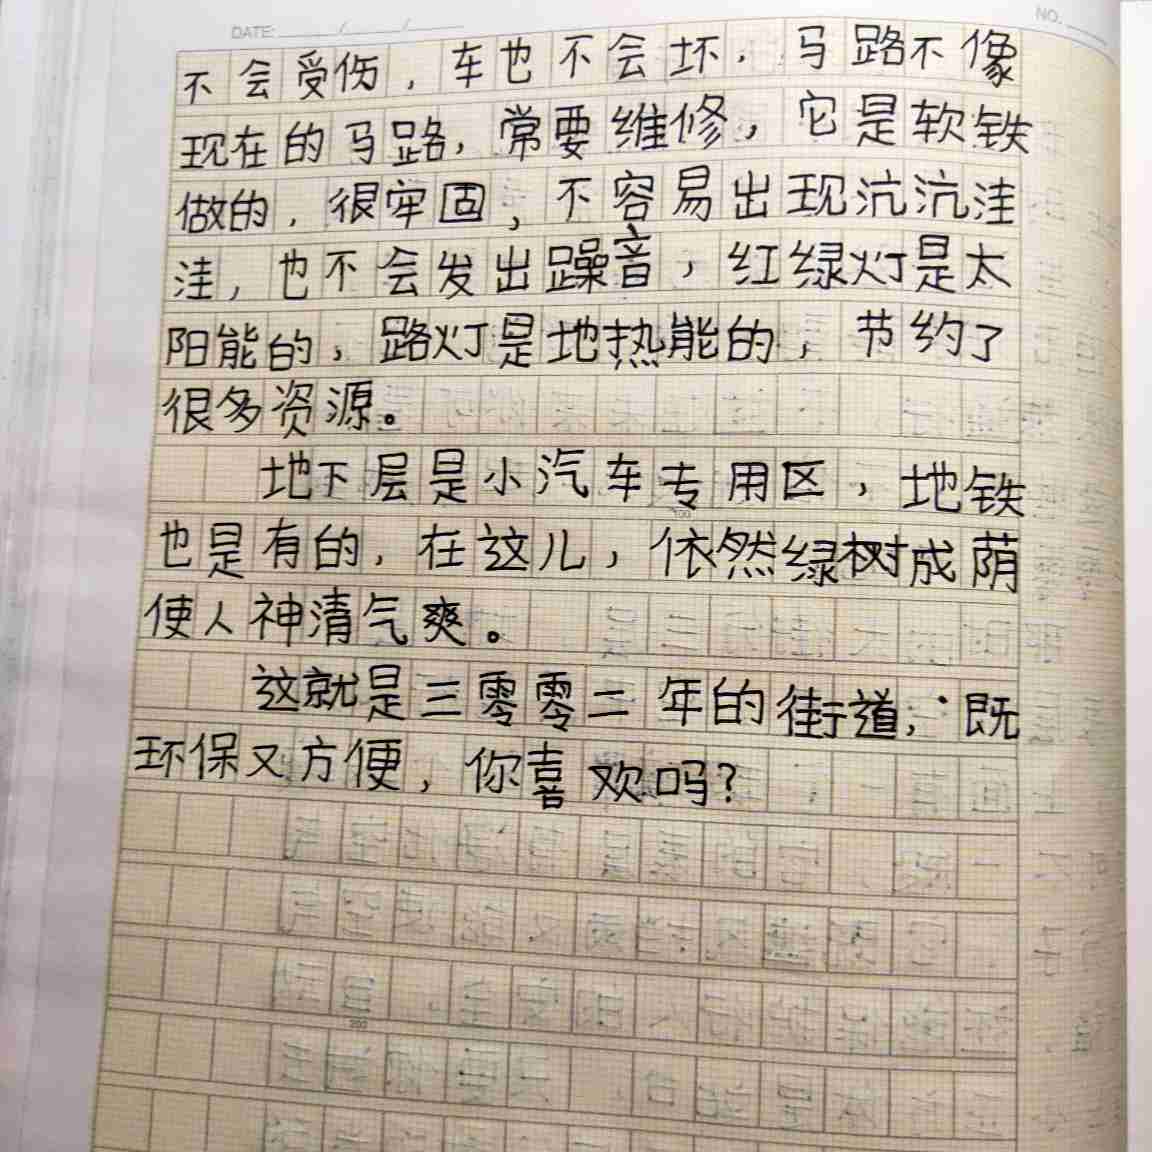 DATE: / /
NO.
不会受伤，车也不会坏，马路不像
现在的马路，常要维修，它是软铁
做的，很牢固，不容易出现沆沆洼
洼，也不会发出躁音，红绿灯是太
阳能的，路灯是地热能的，节约了
很多资源。
地下层是小汽车专用区，地铁
也是有的，在这儿，依然绿树成荫
使人神清气爽。
这就是三零零二年的街道，既
环保又方便，你喜欢吗？